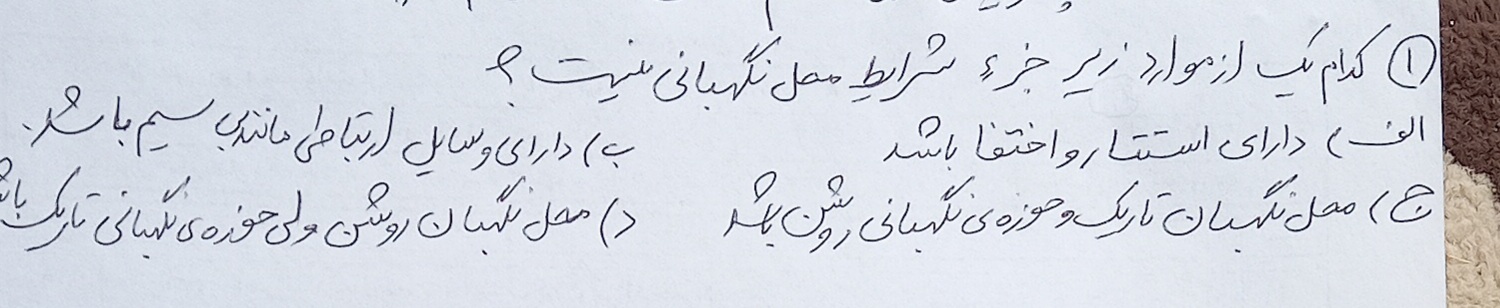 ۱) کدام یک از موارد زیر جزء شرایط محل نگهبانی نیست؟
الف) دارای استتار و اختفا باشد ب) دارای وسایل ارتباطی مانند بی سیم باشد.
ج) محل نگهبان تاریک و حوزه‌ی نگهبانی روشن باشد د) محل نگهبان روشن ولی حوزه‌ی نگهبانی تاریک باشد